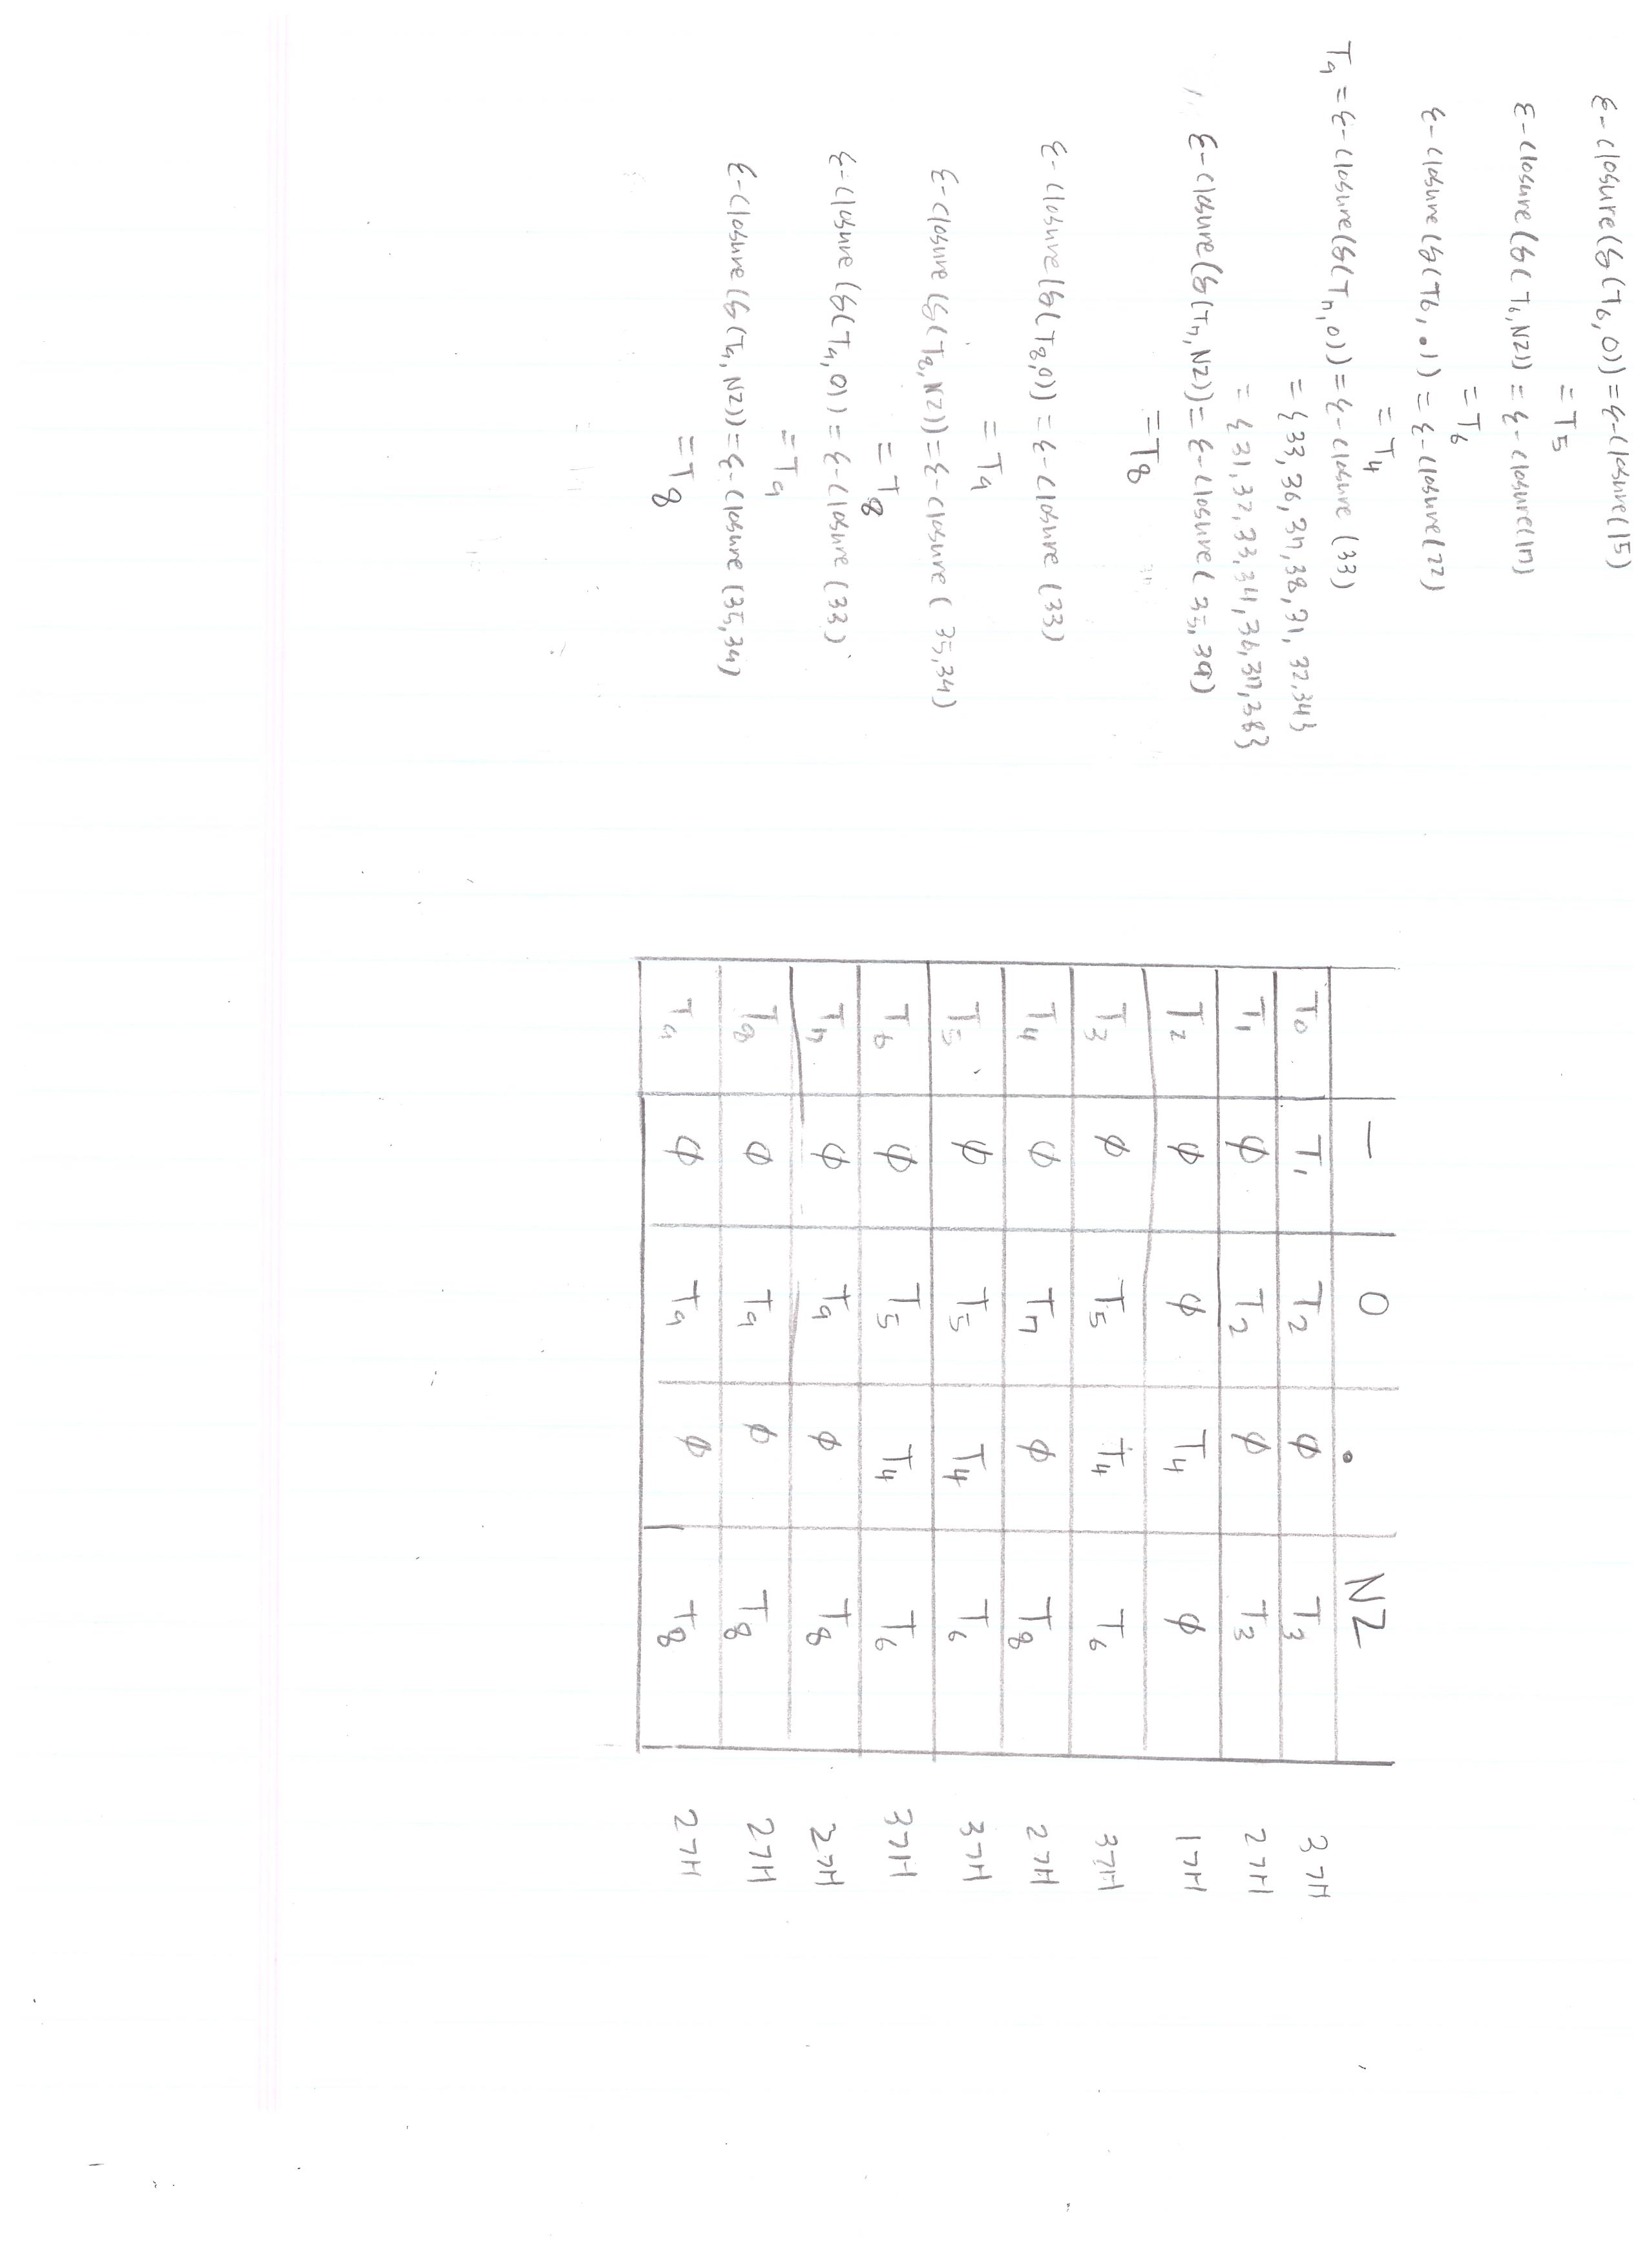 ε-closure(δ(T6,0))=ε-closure(15)
=T5
ε-closure(δ(T6,NZ))=ε-closure(17)
=T6
ε-closure(δ(T6,.))=ε-closure(22)
=T4
T9=ε-closure(δ(T7,0))=ε-closure(33)
={33,36,37,38,31,32,34}
={31,32,33,34,36,37,38}
ε-closure(δ(T7,NZ))=ε-closure(35,39)
=T8
ε-closure(δ(T8,0))=ε-closure(33)
=T9
ε-closure(δ(T8,NZ))=ε-closure(35,39)
=T8
ε-closure(δ(T9,0))=ε-closure(33)
=T9
ε-closure(δ(T9,NZ))=ε-closure(35,39)
=T8
— 0 . NZ
T0 T1 T2 ϕ T3 3개
T1 ϕ T2 ϕ T3 2개
T2 ϕ ϕ T4 ϕ 1개
T3 ϕ T5 T4 T6 3개
T4 ϕ T7 ϕ T8 2개
T5 ϕ T5 T4 T6 3개
T6 ϕ T5 T4 T6 3개
T7 ϕ T9 ϕ T8 2개
T8 ϕ T9 ϕ T8 2개
T9 ϕ T9 ϕ T8 2개